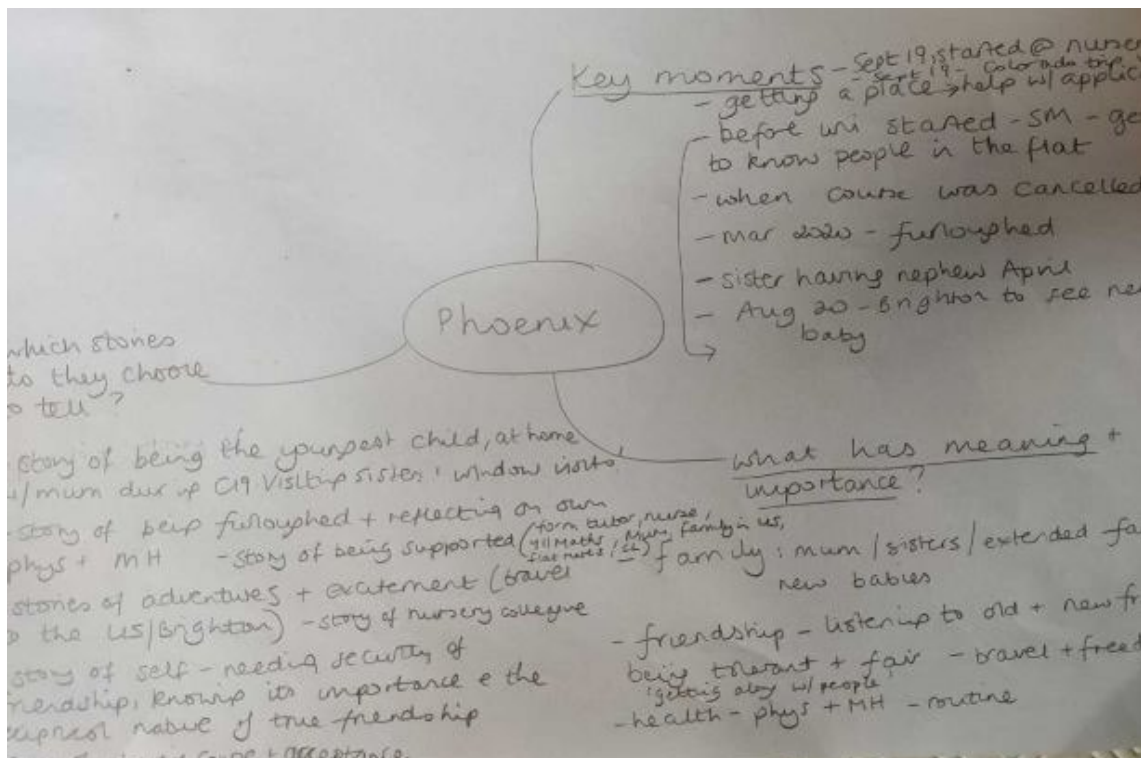 Key moments - Sept 19, started @ nurser
- Sept 19 - Colorado trip
- getting a place → help w/ applic
- before uni started - SM - ge
to know people in the flat
- when course was cancelled
- Mar 2020 - furloughed
- sister having nephew April
- Aug 20 - Brighton to see ne
baby
Phoenix
which stories
to they choose
to tell?
story of being the youngest child, at home
w/mum during C19 Visiting sister 'window visits'
- story of being furloughed + reflecting on own
phys + MH - story of being supported (form tutor, nurse,
Y11 Maths, Mum, family in US,
flat mates
stories of adventures + excitement (travel
to the US/Brighton) - story of nursery colleague
story of self - needing security of
friendship, knowing its importance e the
nature of true friendship
+ acceptance.
what has meaning +
importance?
- family: mum/sisters/extended fa
new babies
- friendship - listening to old + new fr
being tolerant + fair - travel + freed
'getting along w/ people'
- health - phys + MH - routine